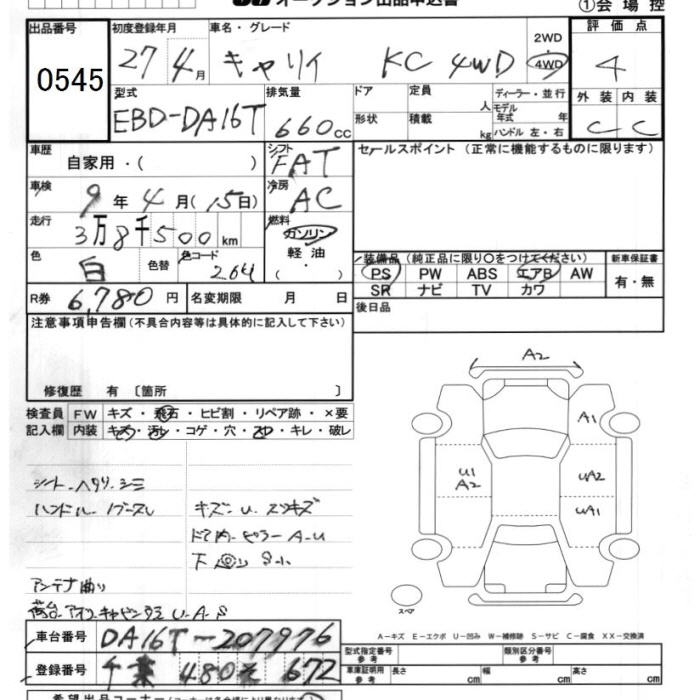 オークション出品申込書
①会場控
出品番号
0545
初度登録年月
27年4月
車名・グレード
キャリイ KC 4WD
2WD・4WD
評価点
4
型式
EBD-DA16T
排気量
660cc
ドア
形状
定員 人
積載 kg
ディーラー・並行
モデル年式 年
ハンドル 左・右
外装 内装
C C
車歴
自家用・( )
シフト
FAT
セールスポイント (正常に機能するものに限ります)
車検
9年4月(15日)
冷房
AC
走行
3万8千500km
燃料
ガソリン
軽油
( )
色
白
色替
色コード
26U
装備品 (純正品に限り○をつけてください)
PS PW ABS エアB AW
SR ナビ TV カワ
新車保証書
有・無
R券
6,780円
名変期限 月 日
後日品
注意事項申告欄(不具合内容等は具体的に記入して下さい)
修復歴 有 〔箇所 〕
検査員記入欄
FW キズ・飛石・ヒビ割・リペア跡・×要
内装 キズ・汚レ・コゲ・穴・スレ・キレ・破レ
シート ヘタリ シミ
ハンドル
キズ・U・スリキズ
ドア内・ピラー A・U
下廻り S小
アンテナ曲り
荷台・アオリ・キャビン U・A・S
A2
A1
U1
A2
UA2
UA1
スペア
A-キズ E-エクボ U-凹み W-補修跡 S-サビ C-腐食 XX-交換済
車台番号
DA16T-207976
登録番号
千葉 480え 672
型式指定番号
参考
類別区分番号
参考
車庫証明用
参考
長さ cm
幅 cm
高さ cm
希望出品コーナー